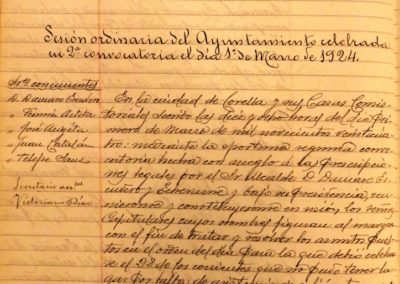 Sesión ordinaria del Ayuntamiento celebrada
en 2ª convocatoria el día 1º de Marzo de 1924.
Sres. concurrentes
D. Damaso Escudero
" Fermin Arteta
" José Augusta
" Juan Catalán
" Felipe Sanz
Secretario
Victoriano Díaz
En la ciudad de Corella y sus Casas Consis
toriales siendo las diez y ocho horas del día pri
mero de Marzo de mil novecientos veinticua
tro: mediante la oportuna segunda convo
catoria hecha con arreglo a las prescripcio
nes legales por el Sr. Alcalde D. Damaso Es
cudero y Echeverria y bajo su presidencia, reu
nieronse y constituyeronse en sesión los Sres.
Capitulares cuyos nombres figuran al margen
con el fin de tratar y resolver los asuntos pues
tos en el orden del día para la que debió celebrar
se el 28 de los corrientes que no pudo tener lu
gar por falta de